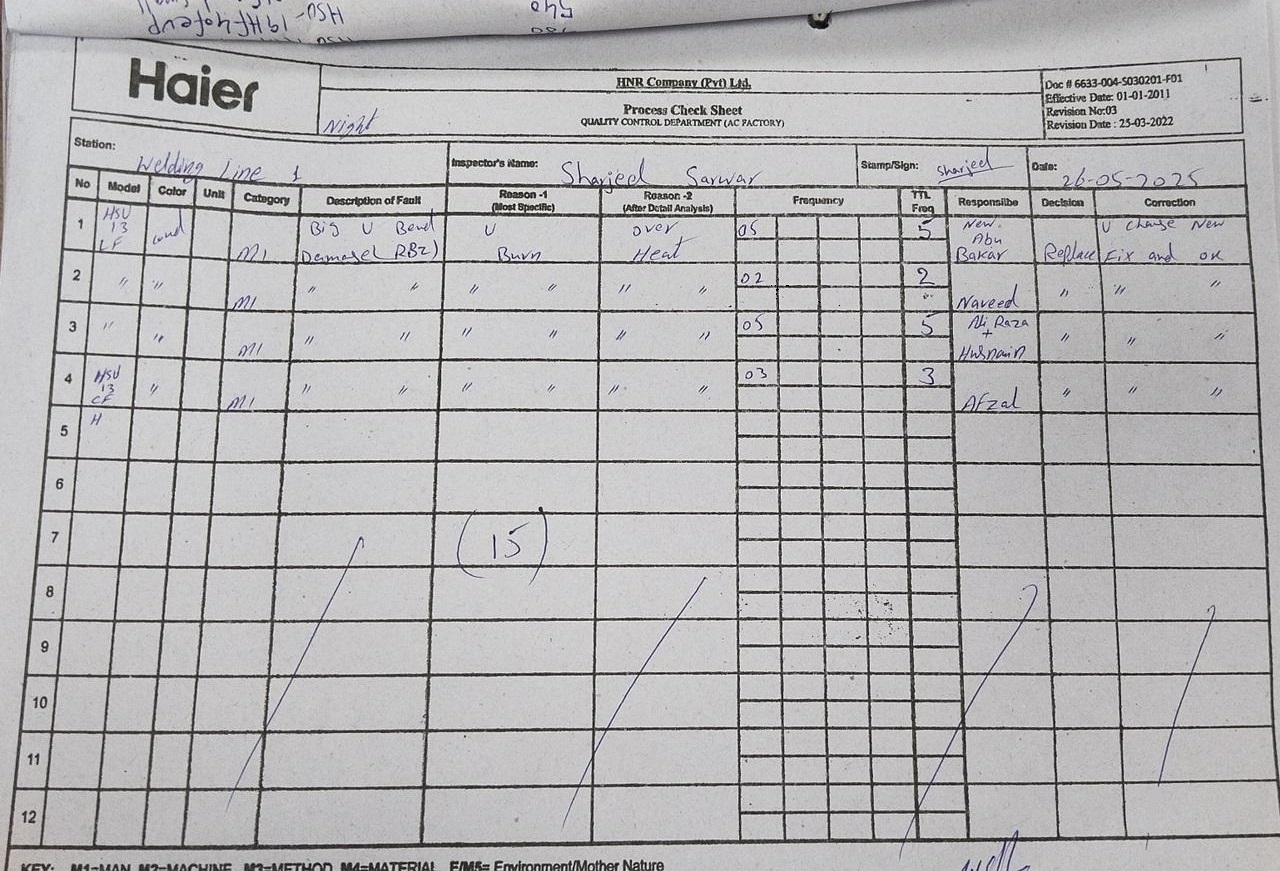 Haier
HNR Company (Pvt) Ltd.
Process Check Sheet
QUALITY CONTROL DEPARTMENT (AC FACTORY)
Night
Doc # 6633-004-S030201-F01
Effective Date: 01-01-2011
Revision No:03
Revision Date : 25-03-2022
Station: Welding Line 1
Inspector's Name: Sharjeel Sarwar
Stamp/Sign: Sharjeel
Date: 26-05-2025
No Model Color Unit Category Description of Fault Reason -1 (Most Specific) Reason -2 (After Detail Analysis) Frequency TTL Freq Responsilbe Decision Correction
1 HSU 13 LF cond M1 Big U Bend Damage( RB2) U Burn over Heat 05 5 New. Abu Bakar Replace U change New Fix and ok
2 " " M1 " " " " " " 02 2 Naveed " " "
3 " " M1 " " " " " " 05 5 Ali Raza + Husnain " " "
4 HSU 13 CF " M1 " " " " " " 03 3 Afzal " " "
5 H
6
7 (15)
8
9
10
11
12
KEY: M1=MAN M2=MACHINE M3=METHOD M4=MATERIAL E/M5= Environment/Mother Nature